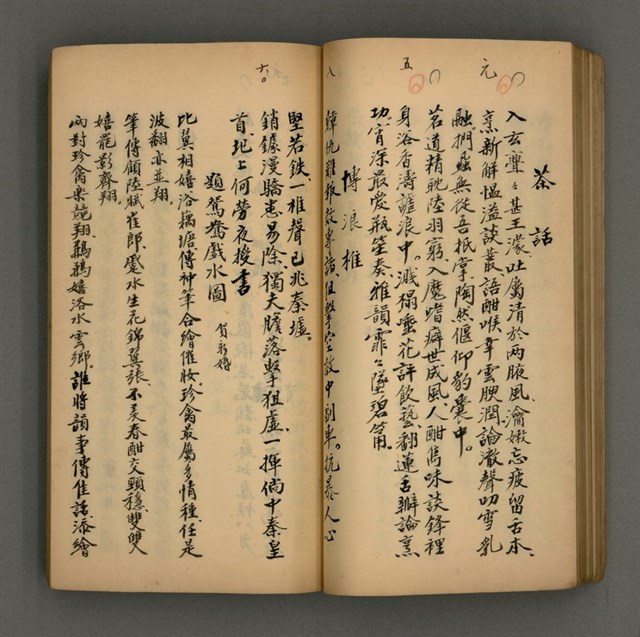 元
茶話
入玄亹々甚王濛、吐屬清於两腋風、瀹嫩忘疲留舌本、
烹新解慍溢談叢、語酣喉韋雲腴潤、論澈聲叨雪乳
融、捫虱無從吾抵掌、陶然偃仰豹囊中。
五
茗道精耽陸羽窮、入魔嗜癖世成風、人酣雋味談鋒裡
身浴香濤謔浪中。滅榻霏花評飲藝、翻蓮舌辯論烹
功、宵深最愛瓶笙奏、雅韻霏々墜碧筩。
博浪椎
八
韓仇難報效專諸、狙擊空教中副車。抗暴人心
堅若鉄、一椎聲已兆秦墟。
六。
銷鑠漫驕患易除、獨夫膽落擊狙虛、一揮倘中秦皇
首、圯上何勞夜授書
題鴛鴦戲水圖
賀新婚
比翼相嬉浴藕塘、傳神筆合繪催妝、珍禽最屬多情種、任是
波翻亦並翔
筆傳頷陸賦崔郎、戲水生花錦翼張、不羨春酣交頸穩、雙雙
嬉罷影齊翔
両對珍禽樂競翔、鶼鶼嬉浴水雲鄉、誰將韻事傳佳話、添繪